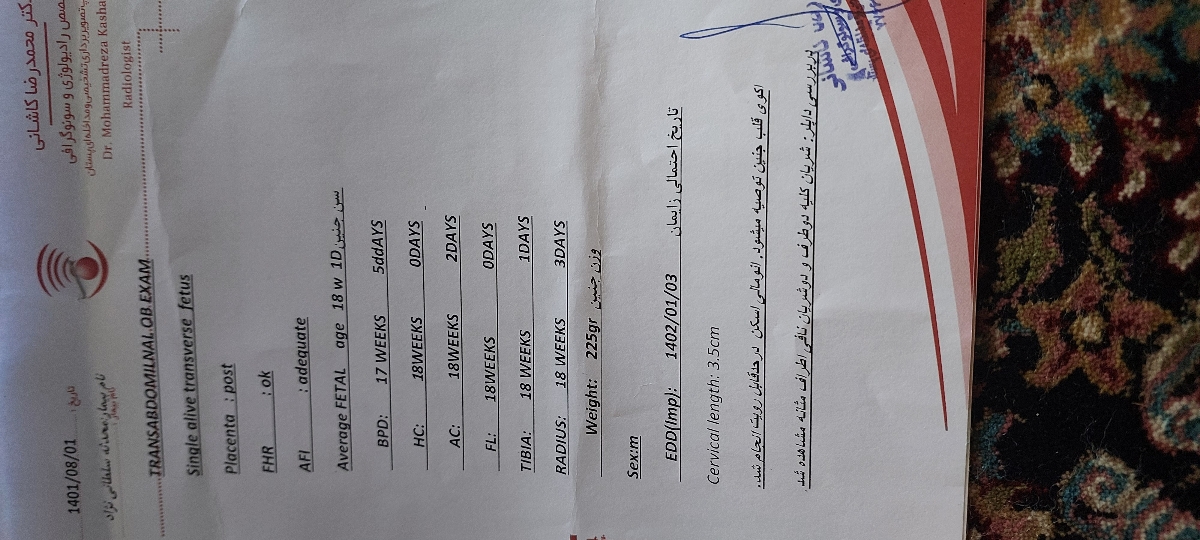 دکتر محمدرضا کاشانی
تخصص رادیولوژی و سونوگرافی
Dr. Mohammadreza Kasha
Radiologist
تاریخ: 1401/08/01
نام بیمار: محدثه سلطانی نژاد
TRANSABDOMILNAL OB EXAM
Single alive transverse fetus
Placenta : post
FHR : ok
AFI : adequate
Average FETAL age 18 w 1D سن جنین
BPD: 17 WEEKS 5dAYS
HC: 18WEEKS 0DAYS
AC: 18WEEKS 2DAYS
FL: 18WEEKS 0DAYS
TIBIA: 18 WEEKS 1DAYS
RADIUS: 18 WEEKS 3DAYS
Weight: 225gr وزن جنین
Sex:m
EDD(lmp): 1402/01/03 تاریخ احتمالی زایمان
Cervical length: 3.5cm
اکوی قلب جنین توصیه میشود. انومالی اسکن در حدقابل رویت انجام شد.
در بررسی داپلر: شریان کلیه دو طرف و دوشریان نافی اطراف مثانه مشاهده شد.